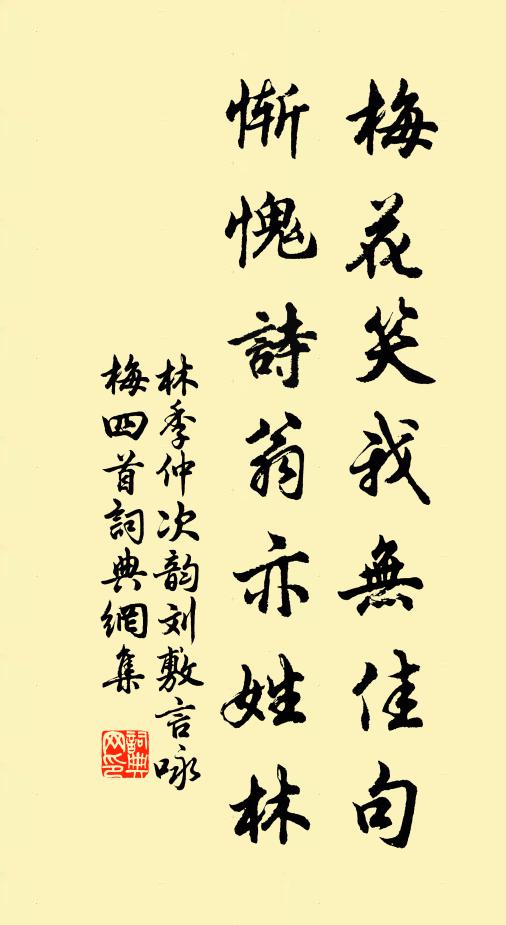 梅花笑我無佳句
慚愧詩翁亦姓林
林季仲次韵刘敷言咏
梅四首詞典網集
詞典
网印